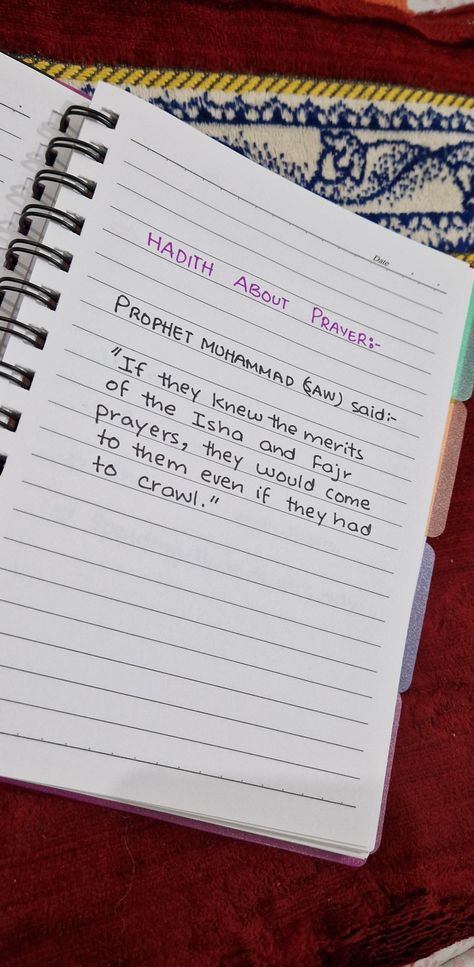 Date
HADITH ABOUT PRAYER:-
PROPHET MUHAMMAD (SAW) said:-
"If they knew the merits
of the Isha and Fajr
prayers, they would come
to them even if they had
to crawl."